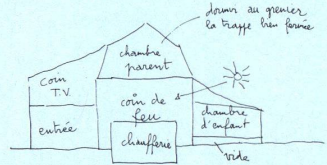 dormir au grenier
la trappe bien fermée
chambre
parent
coin
T.V.
coin de
feu
chambre
d'enfant
entrée
chaufferie
vide